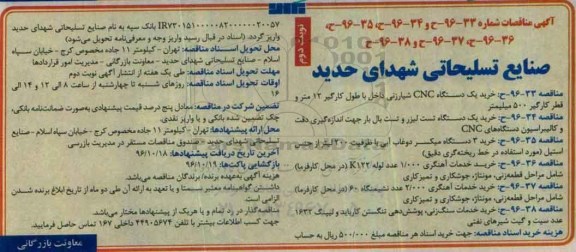 آگهی مناقصات شماره ۳۳-۹۶-ح و ۳۴-۹۶-ح، ۳۵-۹۶-ح،
۳۶-۹۶-ح، ۳۷-۹۶-ح و ۳۸-۹۶-ح
نوبت دوم
صنایع تسلیحاتی شهدای حدید
مناقصه ۳۳-۹۶-ح: خرید یک دستگاه CNC شیارزنی داخل با طول کارگیر ۱۲ متر و
قطر کارگیر ۵۰۰ میلیمتر
مناقصه ۳۴-۹۶-ح: خرید یک دستگاه تست لیزر و تست بال بار جهت اندازه‌گیری دقت
و کالیبراسیون دستگاه‌های CNC
مناقصه ۳۵-۹۶-ح: خرید ۳ دستگاه میکسر دوغاب آبی با ظرفیت ۳۰۰ لیتر از جنس
استیل (مورد استفاده در خط ریخته‌گری دقیق)
مناقصه ۳۶-۹۶-ح: خرید خدمات آهنگری ۱/۰۰۰ عدد لوله K۱۳۲ (در محل کارفرما)
شامل مراحل قطعه‌زنی، مونتاژ، جوشکاری و تمیزکاری
مناقصه ۳۷-۹۶-ح: خرید خدمات آهنگری ۲/۰۰۰ عدد نشیمنگاه ۶۰ (در محل کارفرما)
شامل مراحل قطعه‌زنی، مونتاژ، جوشکاری و تمیزکاری
مناقصه ۳۸-۹۶-ح: خرید خدمات سنگ‌زنی، پوشش‌دهی تنگستن کارباید و لپینگ ۱۶۳۲
عدد سیت و گیت شیرهای نفتی
هزینه خرید اسناد مناقصه: جهت خرید اسناد هر مناقصه مبلغ ۵۰۰/۰۰۰ ریال به حساب
IR۷۳۰۱۵۰۰۰۰۰۸۲۰۰۰۰۰۲۰۰۵۷ بانک سپه به نام صنایع تسلیحاتی شهدای حدید
واریز گردد. (اسناد در قبال رسید واریز وجه و معرفی‌نامه تحویل می‌شود)
محل تحویل اسناد مناقصه: تهران - کیلومتر ۱۱ جاده مخصوص کرج - خیابان سپاه
اسلام - صنایع تسلیحاتی شهدای حدید - معاونت بازرگانی - مدیریت امور قراردادها
مهلت تحویل اسناد مناقصه: طی یک هفته از انتشار آگهی نوبت دوم
اوقات تحویل اسناد مناقصه: روزهای شنبه تا چهارشنبه از ساعت ۸ الی ۱۲ و ۱۴ الی
۱۶
تضمین شرکت در مناقصه: معادل پنج درصد قیمت پیشنهادی به‌صورت ضمانت‌نامه بانکی،
چک تضمین شده بانکی و یا واریز نقدی.
محل ارائه پیشنهادها: تهران - کیلومتر ۱۱ جاده مخصوص کرج - خیابان سپاه اسلام - صنایع
تسلیحاتی شهدای حدید - صندوق مناقصات مستقر در مدیریت بازرسی
آخرین تاریخ دریافت پیشنهادها: ۹۶/۱۰/۱۸
بازگشایی پاکت‌ها: ۹۶/۱۰/۱۹
هزینه آگهی به‌عهده برنده/برندگان مناقصه می‌باشد.
داشتن گواهینامه معتبر سمسما و یا تعهد به ارائه آن طی دو ماه از تاریخ ابلاغ برنده شدن
الزامی است.
مناقصه‌گذار در رد تمام و یا هریک از پیشنهادها مختار می‌باشد.
جهت کسب اطلاعات بیشتر با تلفن ۴۴۹۰۵۶۷۴ داخلی ۱۶۷ تماس حاصل فرمایید.
معاونت بازرگانی